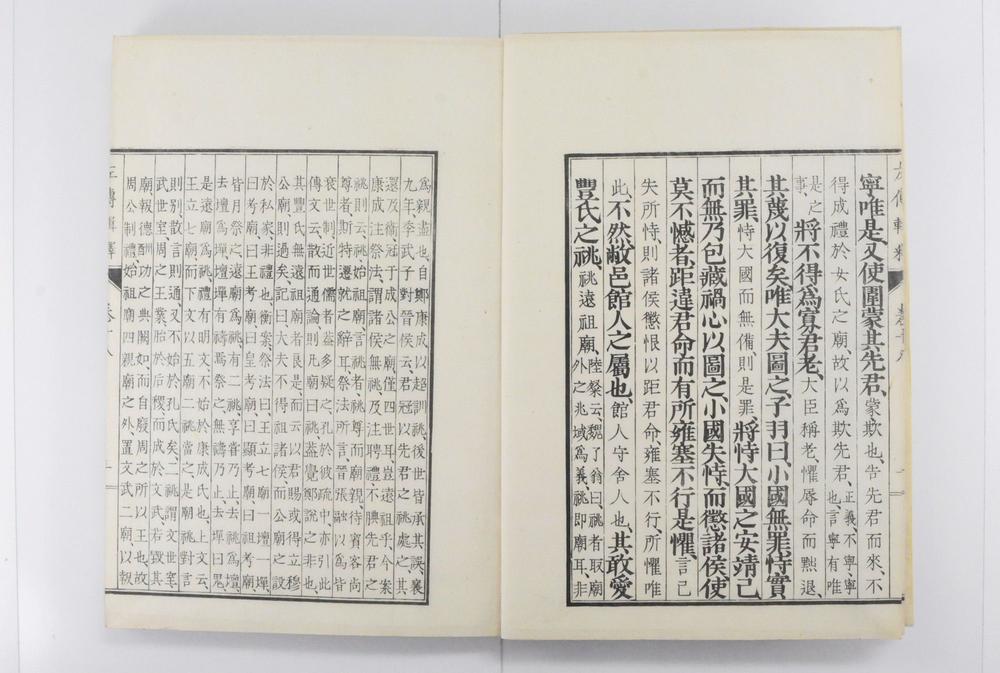 寧唯是、又使圍蒙其先君、蒙、欺也、告先君而來、不
得成禮於女氏之廟、故以爲欺先君也、正義、不寧寧有唯
是之事、將不得爲寡君老、大臣稱老、懼辱命而黜退、
其蔑以復矣、唯大夫圖之、子羽曰、小國無罪、恃實
其罪、恃大國而無備則是罪、將恃大國之安靖己、
而無乃包藏禍心以圖之、小國失恃、而懲諸侯、使
莫不憾者、距違君命、而有所雍塞不行是懼、言己
失所恃、則諸侯懲恨以距君命、雍塞不行、所懼唯
此、不然、敝邑館人之屬也、館人守舍人也、其敢愛
豐氏之祧、祧遠祖廟、陸粲云、魏了翁曰、祧者取廟外之兆域爲義、祧即廟耳、非
爲親盡也、自鄭康成以超訓祧、後世皆承其誤、襄
九年、季武子對晉侯云、君冠以先君之祧處之、其
還及衞、冠于成公之廟、僅四世耳、豈遠祖乎、今案
康成注祭法、謂諸侯無祧、及注聘禮不腆先君之
祧、則云祧始祖廟、言祧者、祧尊而廟親、待賓客尚
尊者、斯特遷就之辭耳、祭法所言、晉張融以爲皆
衰世之制、近世儒者蓋多疑之、孔於彼疏中、亦引此
傳文云、散而通論、則凡廟曰祧、蓋覺鄭說之非也、
其豐氏無遠祖廟者良是、而云以君賜或得立穆
公廟、則過矣、記曰、大夫不得祖諸侯、而公廟之設
於私家、非禮也、衡案祭法曰、王立七廟一壇一墠、
曰考廟、曰王考廟、曰皇考廟、曰顯考廟、曰祖考廟、
皆月祭之、遠廟爲祧、有二祧、享嘗乃止、去祧爲壇、
去壇爲墠、壇墠有禱焉祭之、無禱乃止、去墠曰鬼、
是遠廟爲祧、禮有明文、不始於康成氏也、上文云、
王立七廟、而下文以五廟二祧當之、是廟祧對言
則別、散言則通、又不始於孔氏矣、二祧謂文世室
武世室、周之王業、胎於后稷、而成於文武、若毀其
廟、報德酬功之典闕如、而自廢周之所以王也、故
周公制禮、始祖廟四親廟之外、置文武二廟、以報
左傳輯釋 卷十八
左傳輯釋 卷十八